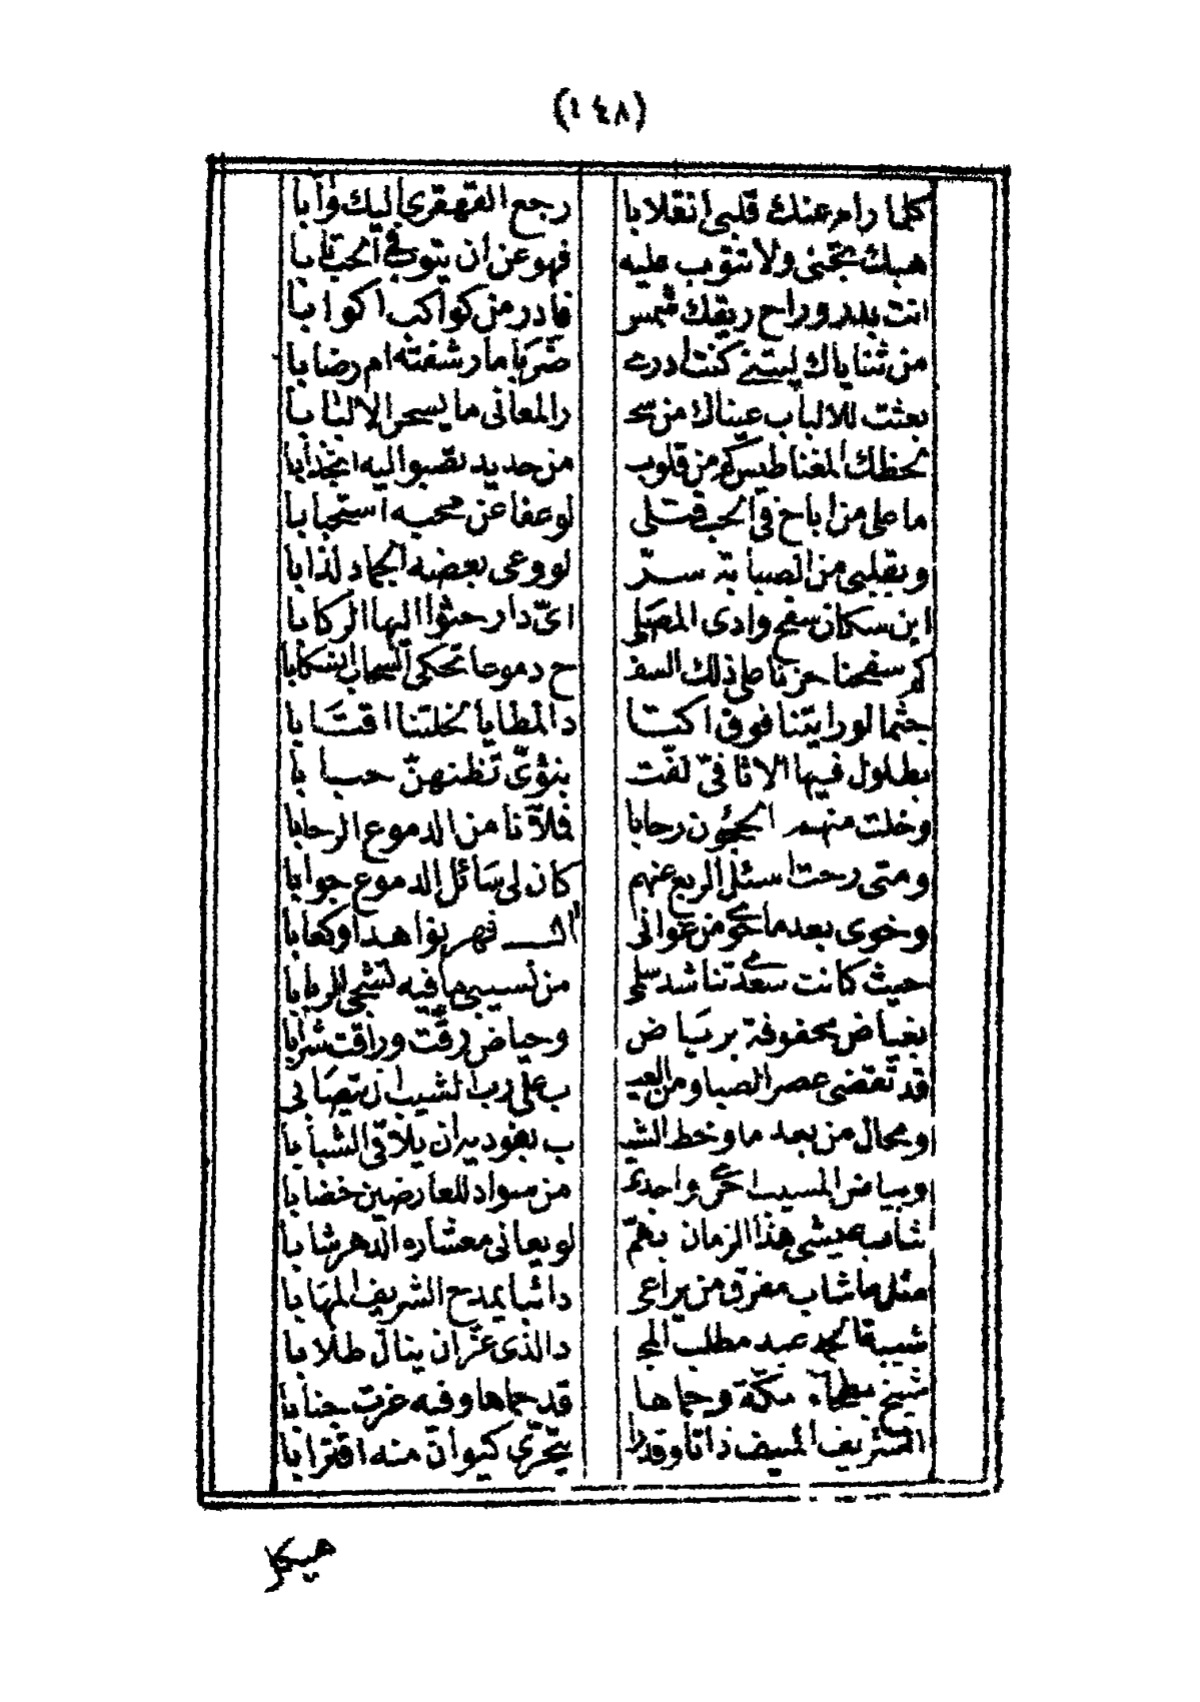 (١٤٨)
كلما رام عنك قلبى انقلابا رجع القهقرى اليك وأبا
هبك تجنى ولا تتوب عليه فهو عن ان يتوب فى الحب تابا
انت بدر وراح ريقك شمس فادر من كواكب اكوابا
من ثناياك ليتنى كنت ادرى ضربا ما رشفته ام رضابا
بعثت للالباب عيناك من سحـ ر المعانى ما يسحر الالبابا
لحظك المغناطيس كم من قلوب من حديد تصبوا اليه انجذابا
ما على من اباح فى الحب قتلى لو عفا عن محبه استحبابا
وبقلبى من الصبابة سرّ لو وعى بعضه الجماد لذابا
اين سكان سفح وادى المصلى اىّ دار حثوا اليها الركابا
كم سفحنا حزنا على ذلك السفـ ح دموعا تحكى السحاب انسكابا
جثما لو رايتنا فوق اكتا د المطايا لخلتنا اقتابا
بطلول فيها الاثافىّ لفّت بنؤىّ تظنهنّ حبابا
وخلت منهم الجفون رحابا فلأنا من الدموع الرحابا
ومتى رحت اسئل الربع عنهم كان لى سائل الدموع جوابا
وخوى بعد ما حوى من غوانى الـــ فهر نواهدا وكعابا
حيث كانت سعدى تناشد سلمى من نسيبى ما فيه تشجى الربابا
بغياض محفوفة برياض وحياض رقّت وراقت شرابا
قد تقضى عصر الصبا ومن العيـ ب على رب الشيب ان يتصابى
ومحال من بعد ما وخط الشيـ ب بفوديه ان يلاقى الشبابا
وبياض المسيب احرى واجدى من سواد للعارضين خضابا
شاب عيشى هذا الزمان بهمّ لو يعانى معشاره الدهر شابا
مثل ما شاب مفرق من يراعى دائبا يمدح الشريف المهابا
شيبة الحمد عبد مطلب المجـ د الذى عزّ ان ينال طلابا
شيخ بطحاء مكة وحماها قد حماها وفيه عزت جنابا
الشريف المنيف ذاتا وقدرا يتحرّى كيوان منه اقترابا
هيكل